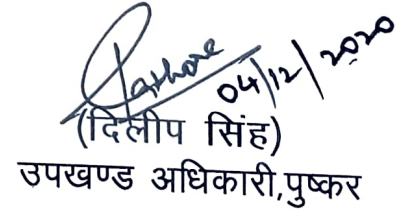 Rathore 04/12/2020
(दिलीप सिंह)
उपखण्ड अधिकारी,पुष्कर